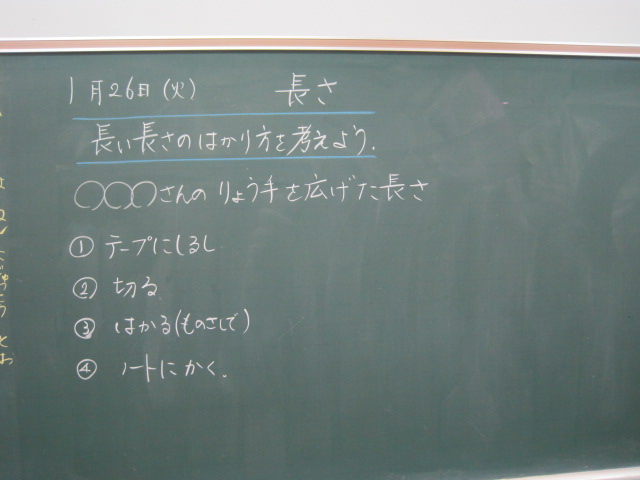 1月26日(火) 長さ
長い長さのはかり方を考えよう.
○○○さんのりょう手を広げた長さ
① テープにしるし
② 切る
③ はかる(ものさしで)
④ ノートにかく.